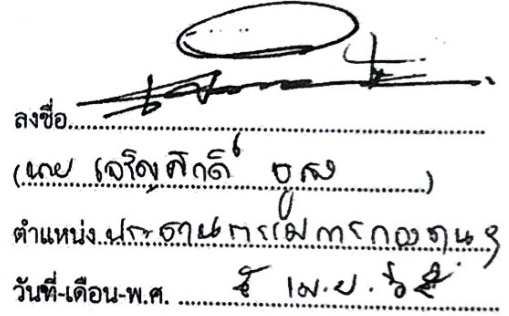 ลงชื่อ
(นาย เจริญศักดิ์ )
ตำแหน่ง ประธานกรรมการกองทุนฯ
วันที่-เดือน-พ.ศ. เม.ย.